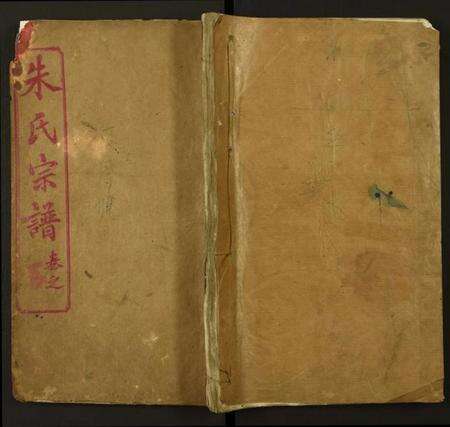 朱氏宗譜
卷之